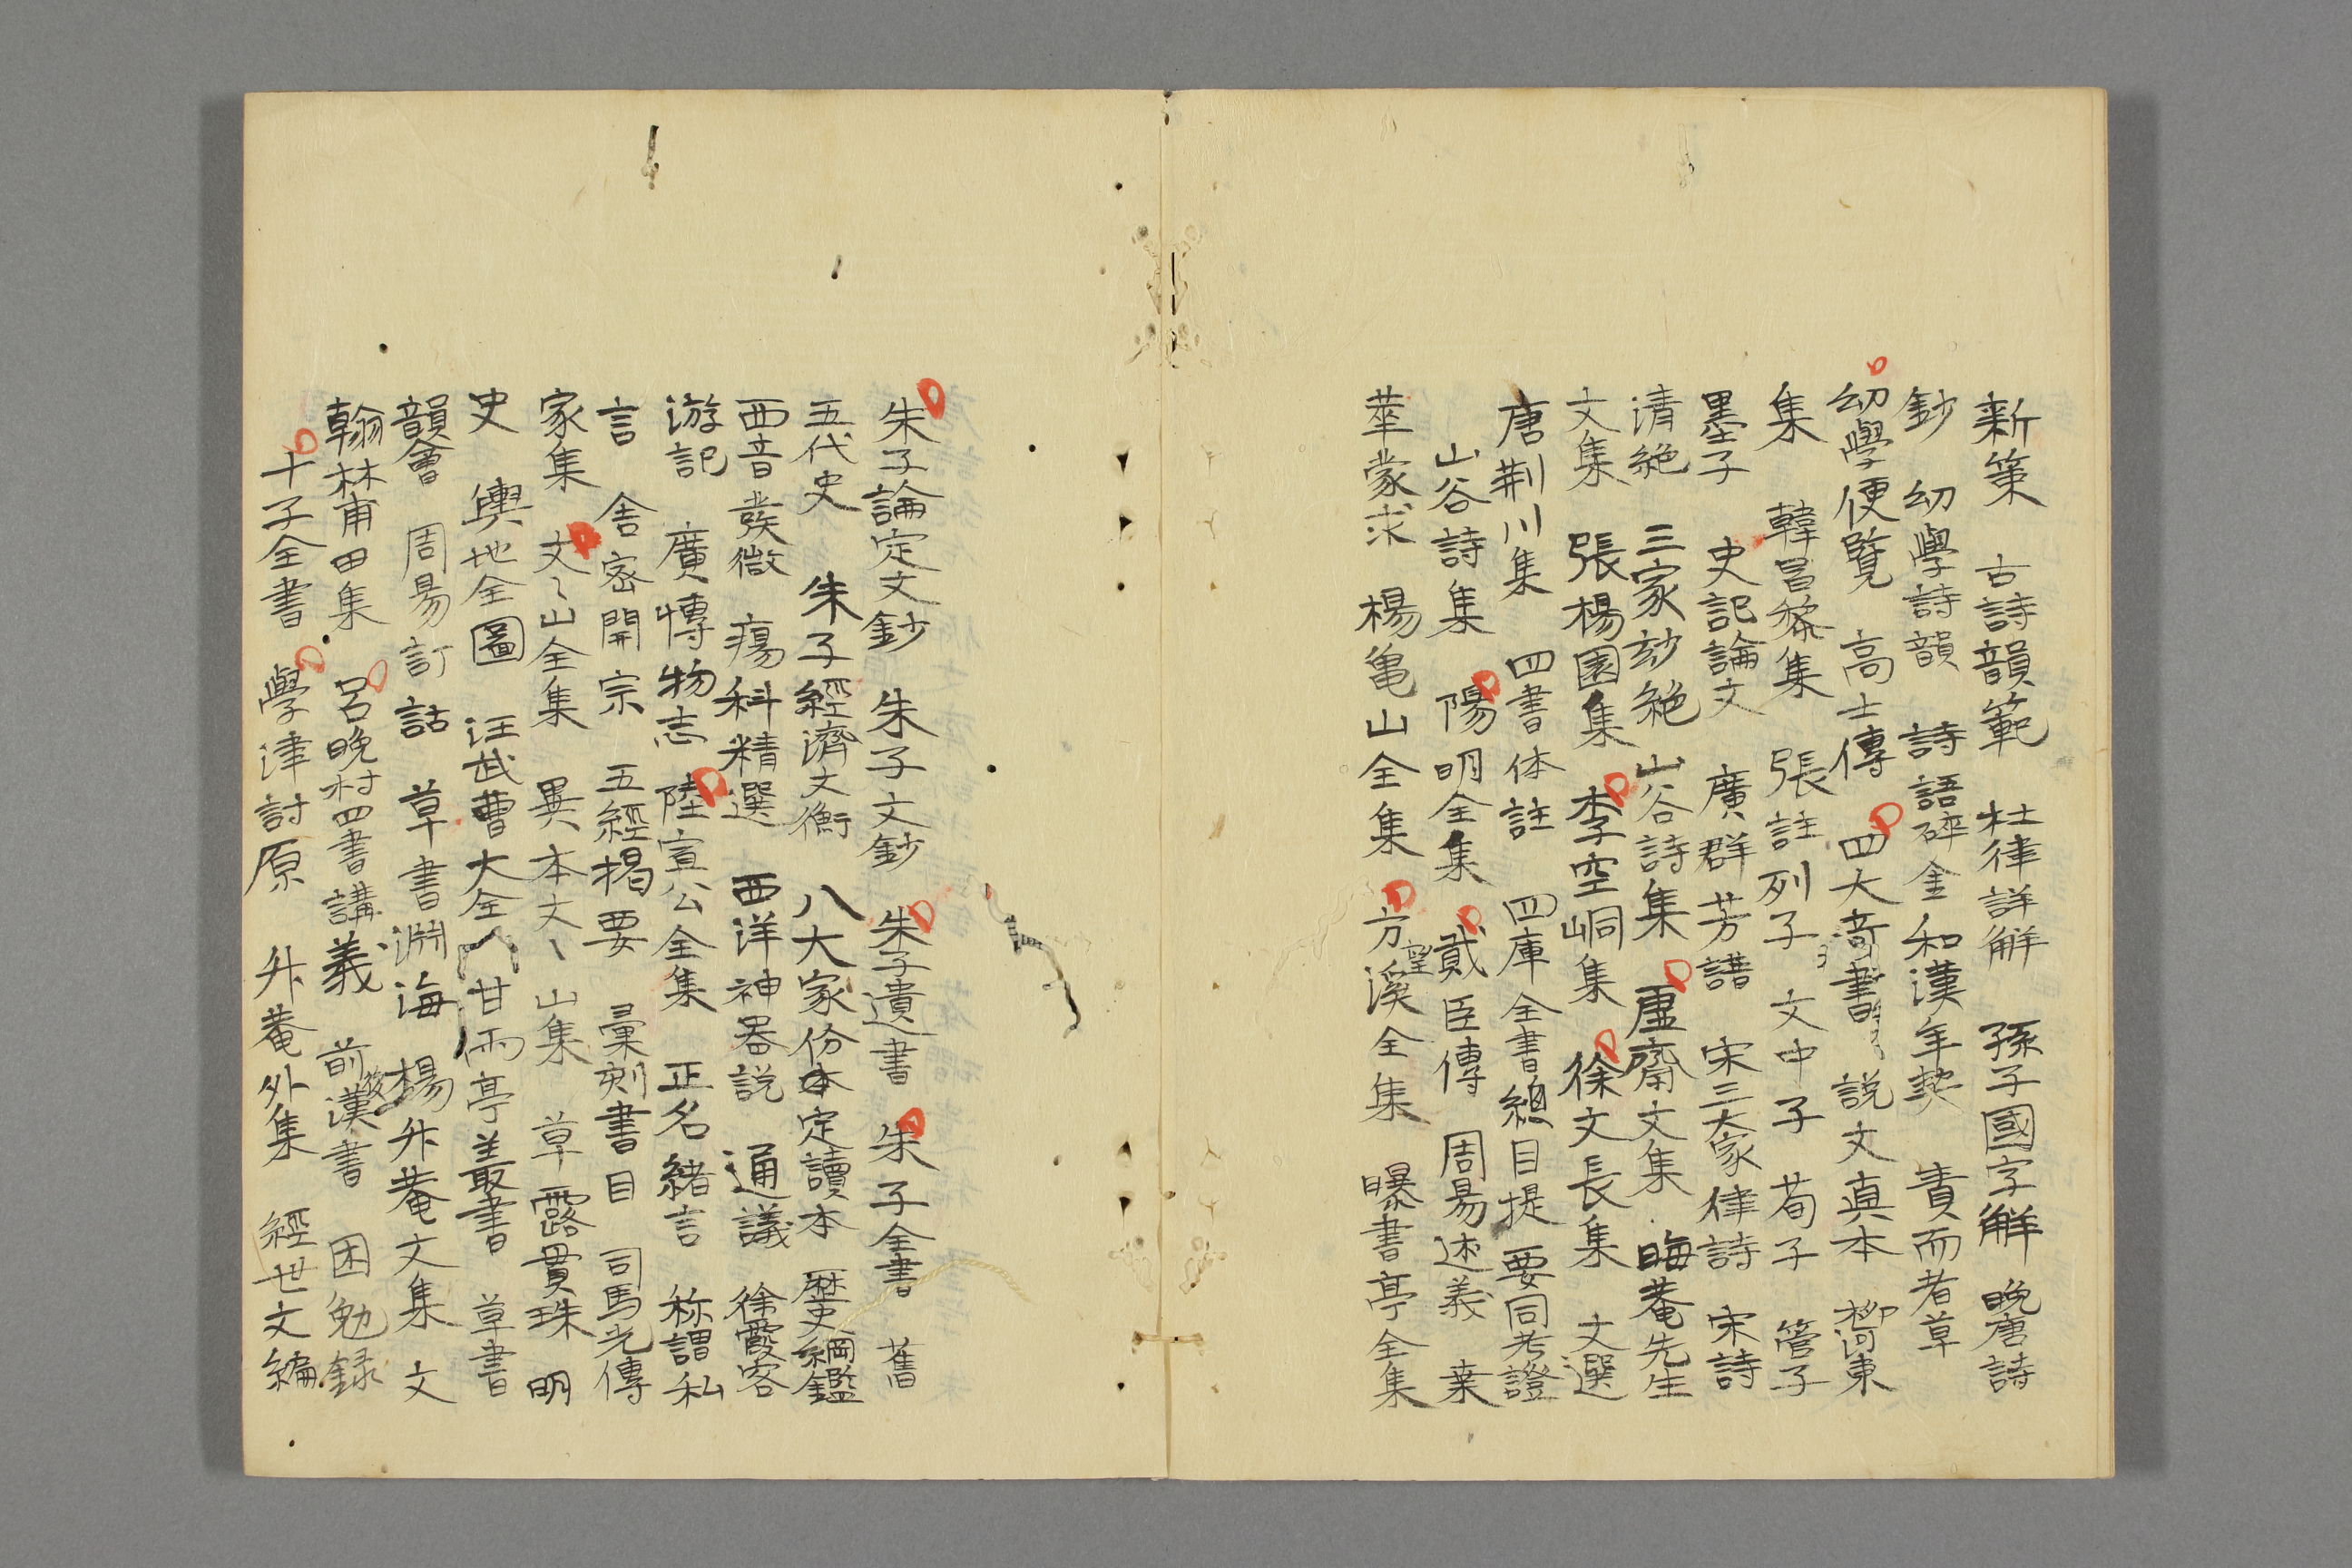 新策　古詩韻範　杜律詳解　孫子國字解　晩唐詩
鈔　幼學詩韻　詩語碎金　和漢年契　責而者草
幼學便覧　高士傳　四大奇書　説文真本　柳河東
集　韓昌黎集　張註列子　文中子　荀子　管子
墨子　史記論文　廣群芳譜　宋三大家律詩　宋詩
清絶　三家妙絶　山谷詩集　虚齋文集　晦菴先生
文集　張楊園集　李空峒集　徐文長集　文選
唐荆川集　四書体註　四庫全書總目提要同考證
山谷詩集　陽明全集　貳臣傳　周易述義　葉
莘蒙求　楊亀山全集　方望溪全集　曝書亭全集
朱子論定文鈔　朱子文鈔　朱子遺書　朱子全書　舊
五代史　朱子經濟文衡　八大家份本定讀本　歴史綱鑑
西音發微　瘍科精選　西洋神器説　通議　徐霞客
游記　廣博物志　陸宣公全集　正名緒言　称謂私
言　舎密開宗　五經掲要　彙刻書目　司馬光傳
家集　文〻山全集　異本文〻山集　草露貫珠　明
史　輿地全圖　汪武曹大全　甘雨亭叢書　草書
韻會　周易訂詁　草書淵海　楊升菴文集　文
翰林甫田集　呂晩村四書講義　前後漢書　困勉録
十子全書　學津討原　升菴外集　經世文編